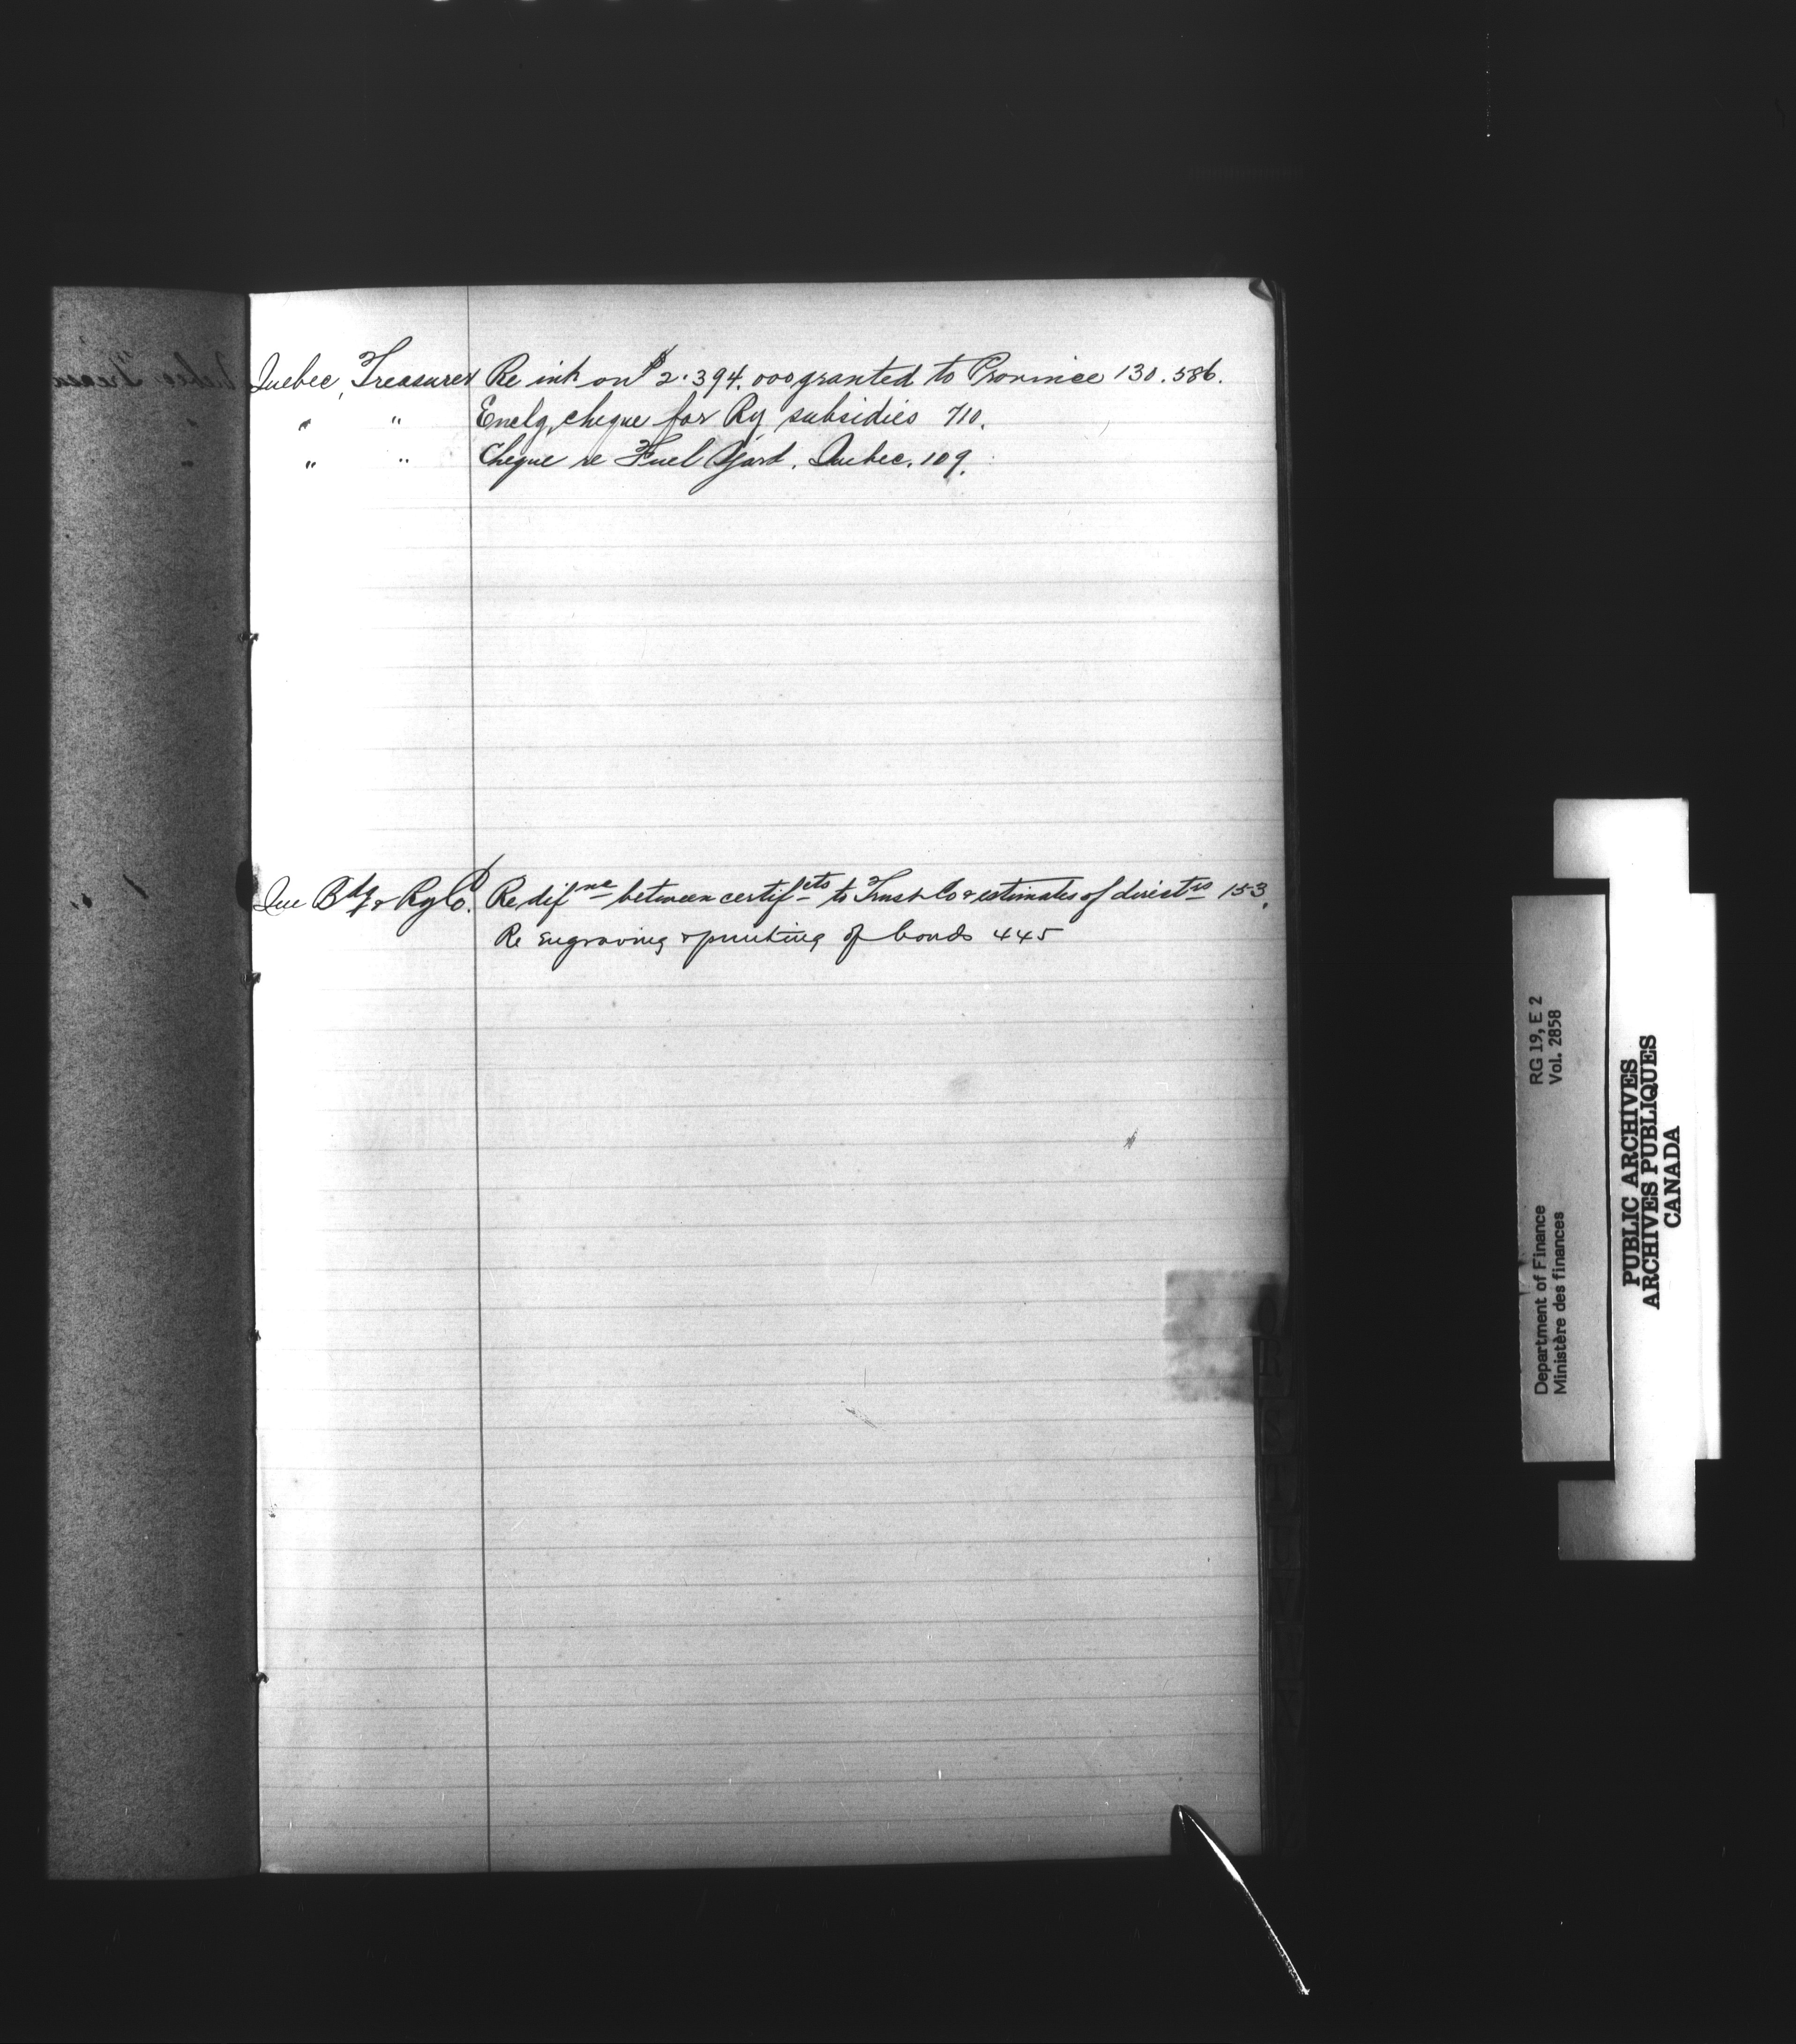 Quebec, Treasurer Re int on $2.394.000 granted to Province 130.586.
" " Enclg. cheque for Ry subsidies 710.
" " Cheque re Fuel Yard. Quebec. 109.
Que Bdg & Ry Co. Re difnce between certifcts to Trust Co & estimates of directrs 153.
Re Engraving & printing of bonds 445
Department of Finance RG 19, E 2
Ministère des finances Vol. 2858
PUBLIC ARCHIVES
ARCHIVES PUBLIQUES
CANADA
R
S